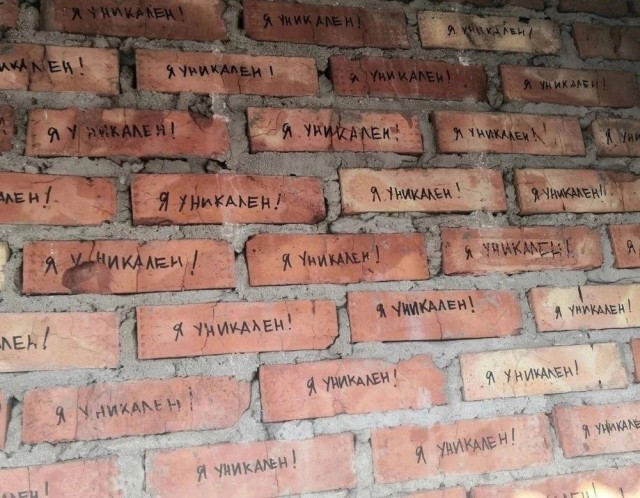 Я УНИКАЛЕН!
Я УНИКАЛЕН!
Я УНИКАЛЕН!
ИКАЛЕН!
Я УНИКАЛЕН!
Я УНИКАЛЕН!
Я УНИКАЛЕН!
Я УНИКАЛЕН!
Я УНИКАЛЕН!
Я УНИКАЛЕН!
Я УНИ
ЛЕН!
Я УНИКАЛЕН!
Я УНИКАЛЕН!
Я УНИКАЛЕН!!
Я УНИКАЛЕН!
Я УНИКАЛЕН!
Я УНИКАЛЕН!
Я
ЛЕН!
Я УНИКАЛЕН!
Я УНИКАЛЕН!
Я УНИКАЛЕН!
Я УНИКАЛЕН!
Я УНИКАЛЕН!
Я УНИКАЛЕН!
Я УНИКАЛЕН!
Я УНИКАЛЕН!
Я УНИКАЛЕ